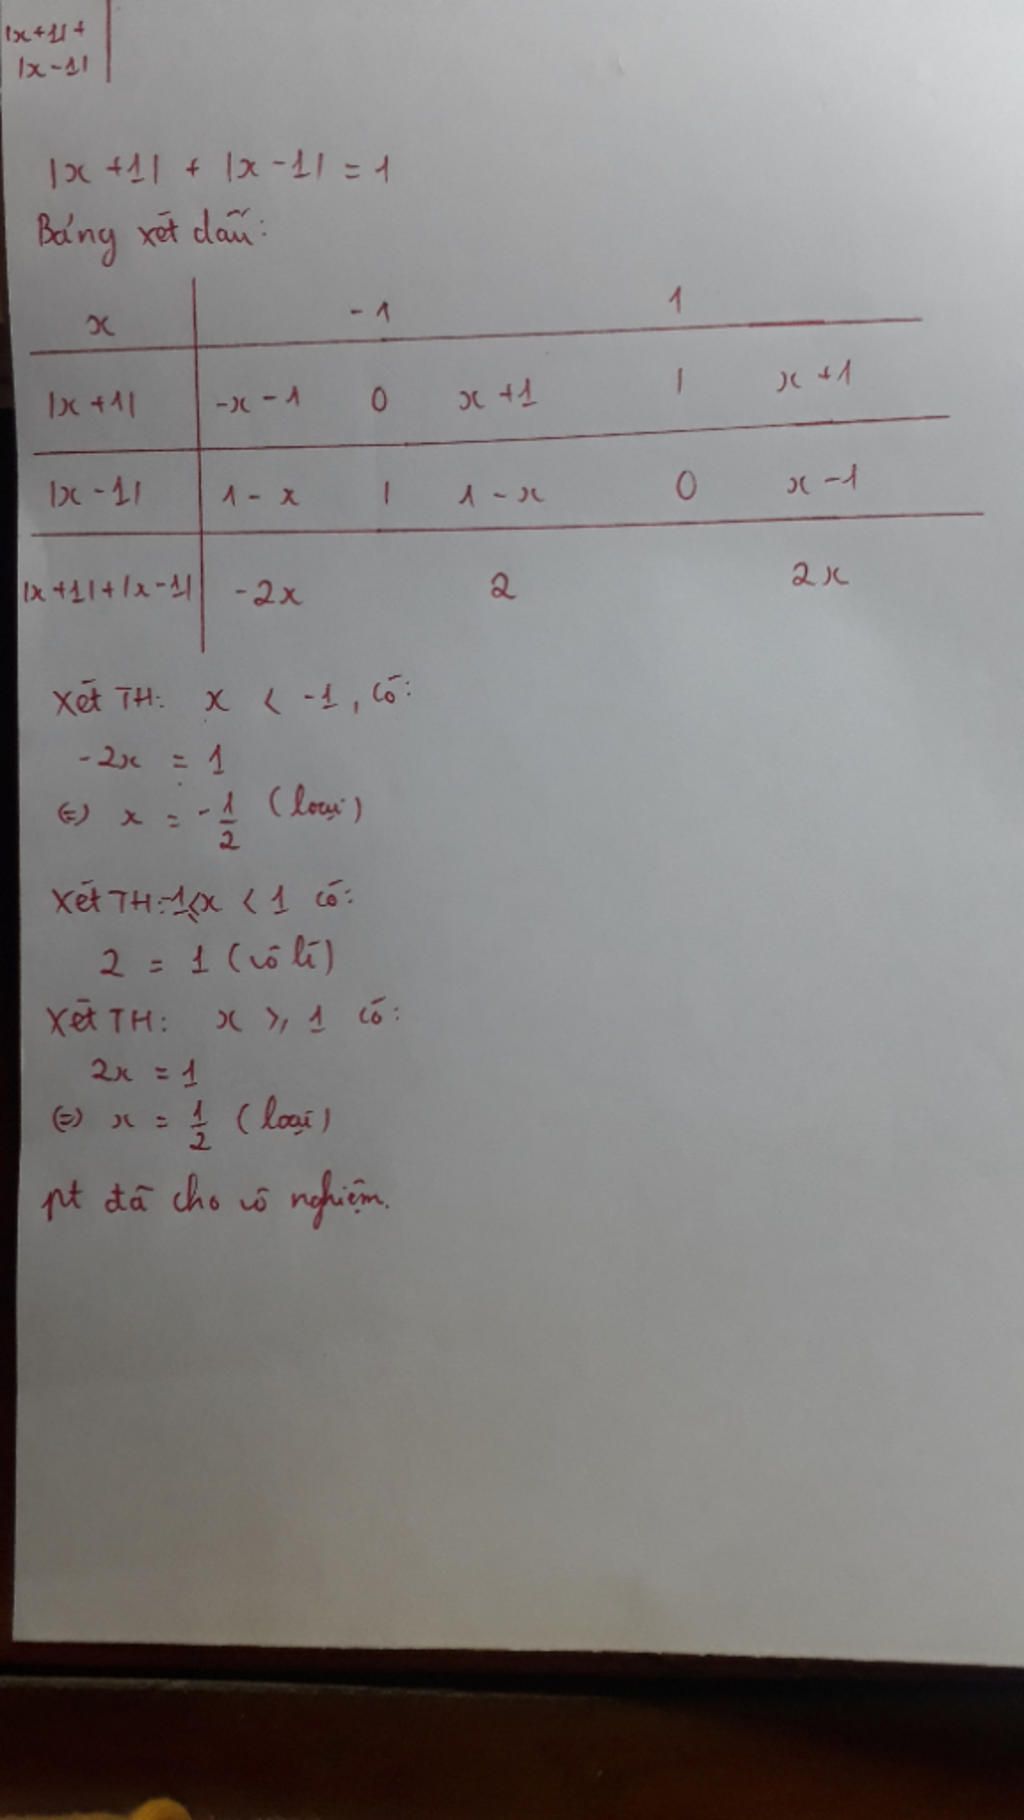 |x+1|+
|x-1|
|x+1| + |x-1| = 1
Bảng xét dấu:
x -1 1
|x+1| -x-1 0 x+1 | x+1
|x-1| 1-x | 1-x 0 x-1
|x+1|+|x-1| -2x 2 2x
Xét TH: x < -1, có:
-2x = 1
(=) x = -1/2 (loại)
Xét TH: -1≤x < 1 có:
2 = 1 (vô lí)
Xét TH: x ≥ 1 có:
2x = 1
(=) x = 1/2 (loại)
pt đã cho vô nghiệm.